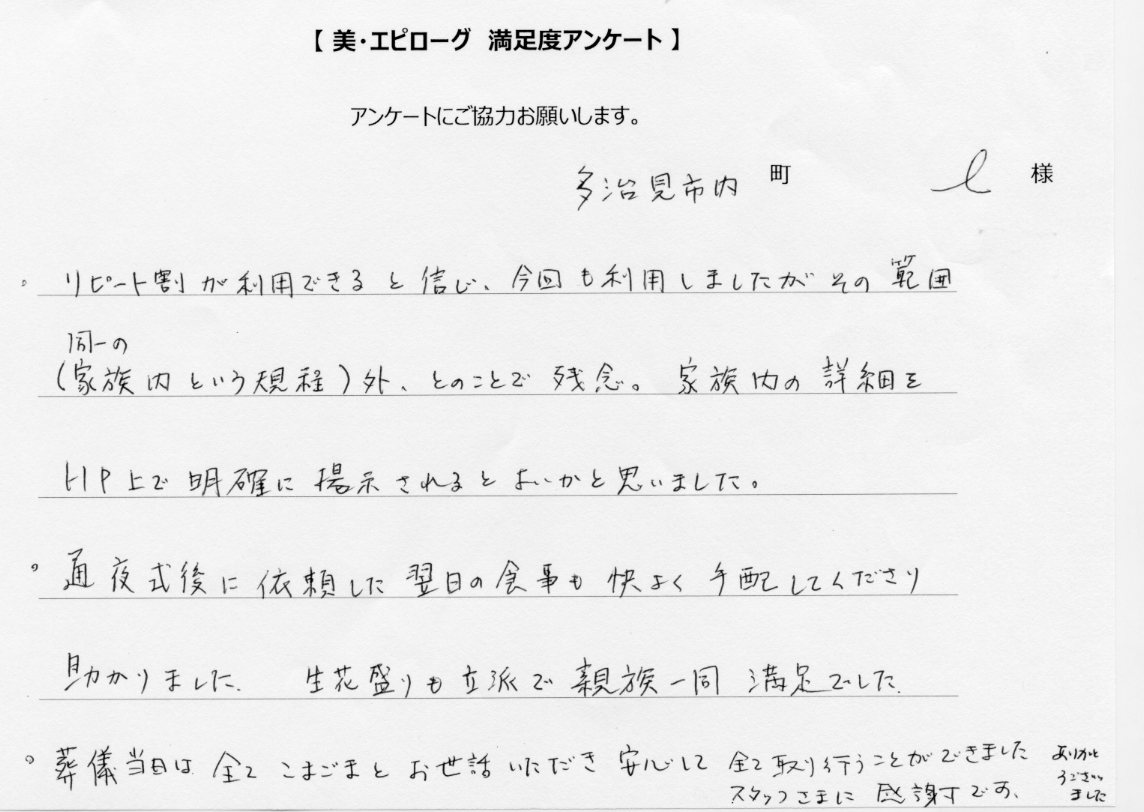 【 美・エピローグ 満足度アンケート 】
アンケートにご協力お願いします。
多治見市内 町 様
・リピート割が利用できると信じ、今回も利用しましたがその範囲
同一の
(家族内という規程)外、とのことで残念。家族内の詳細を
HP上で明確に掲示されるとよいかと思いました。
・通夜式後に依頼した翌日の食事も快よく手配してくださり
助かりました。 生花盛りも立派で親族一同満足でした。
・葬儀当日は全てこまごまとお世話いただき安心して全て取り行うことができました
スタッフさまに感謝です。
ありがと
うござい
ました